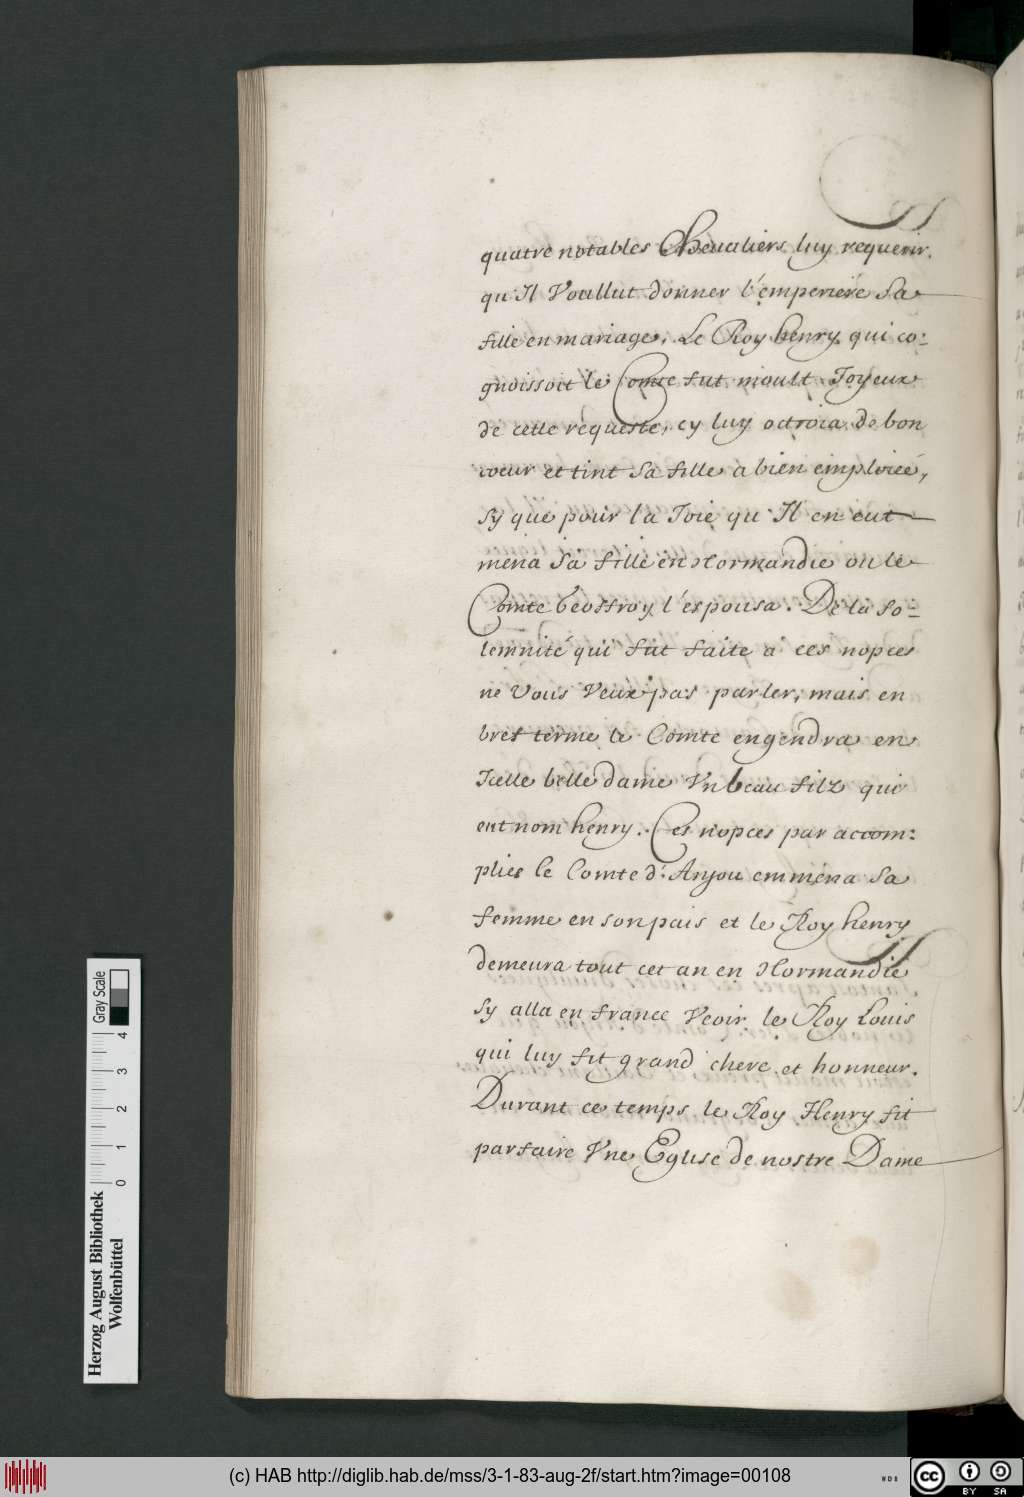 quatre notables Cheualiers luy requerir.
qu'Il Voullut donner l'emperiere sa
fille en mariage, Le Roy henry qui co-
gnoissoit le Comte fut moult Joyeux
de cette requeste, cy luy octroia de bon
coeur et tint sa fille a bien emploieé,
sy que pour la Joie qu'Il en eut
mena sa fille en Normandie ou le
Comte Geoffroy l'espousa. De la so-
lemnité qui fut faite a ces nopces
ne Vous Veux pas parler, mais en
bref terme le Comte engendra en
Icelle belle dame Vn beau filz qui
eut nom henry. Ces nopces par accom:
plies le Comte d'Anjou emmena sa
femme en son pais et le Roy henry
demeura tout cet an en Normandie
sy alla en france Veoir le Roy Louis
qui luy fit grand chere et honneur.
Durant ce temps le Roy Henry fit
parfaire Vne Eglise de nostre Dame
Herzog August Bibliothek
Wolfenbüttel
0 1 2 3 4
Gray Scale
(c) HAB http://diglib.hab.de/mss/3-1-83-aug-2f/start.htm?image=00108
WDB
cc BY SA